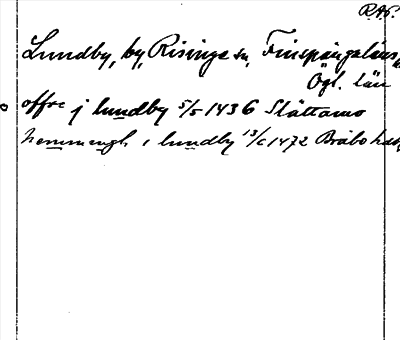 RAP.
Lundby, by, Risinge sn, Finspångaläns
Ögl. län
offre j lundby 5/5 1436 Slättamo
hemmingh i lundby 13/6 1472 Bråbo